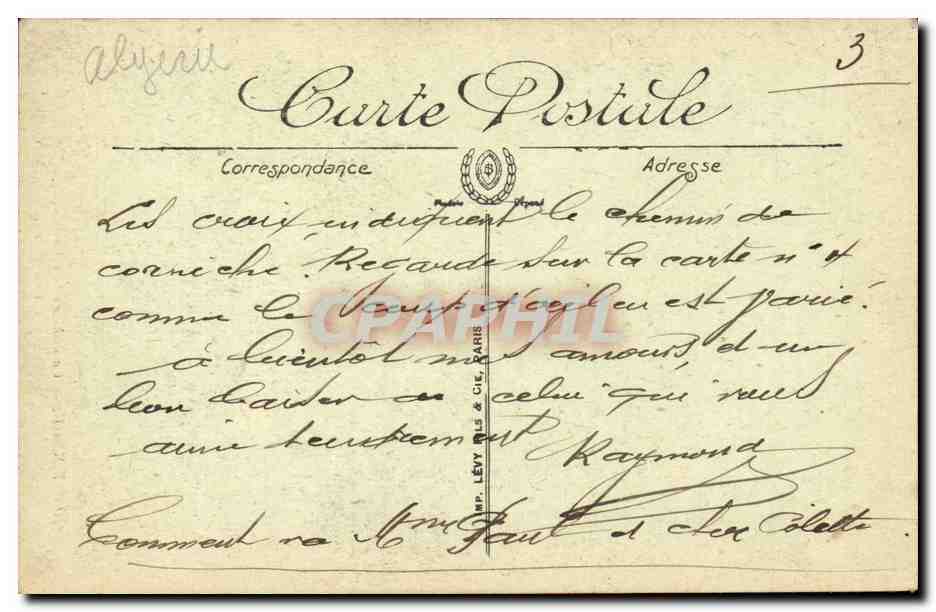 Algerie
3
Carte Postale
Correspondance
Adresse
Les croix indiquent le chemin de
corniche. Regarde sur la carte n° 4
comme le est varié.
à bientôt mes amours, et un
bon baiser de celui qui vous
aime tendrement
Raymond
Comment va Mme Paul et chez Colette
IMP. LÉVY FILS & CIE, PARIS
CPAPHIL